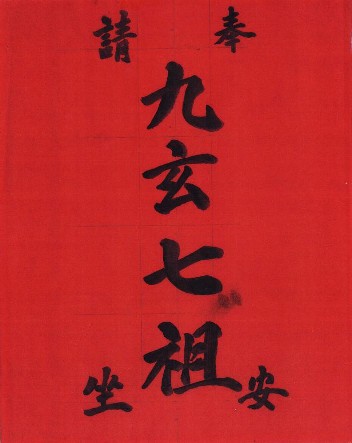 奉請
九玄七祖
安坐